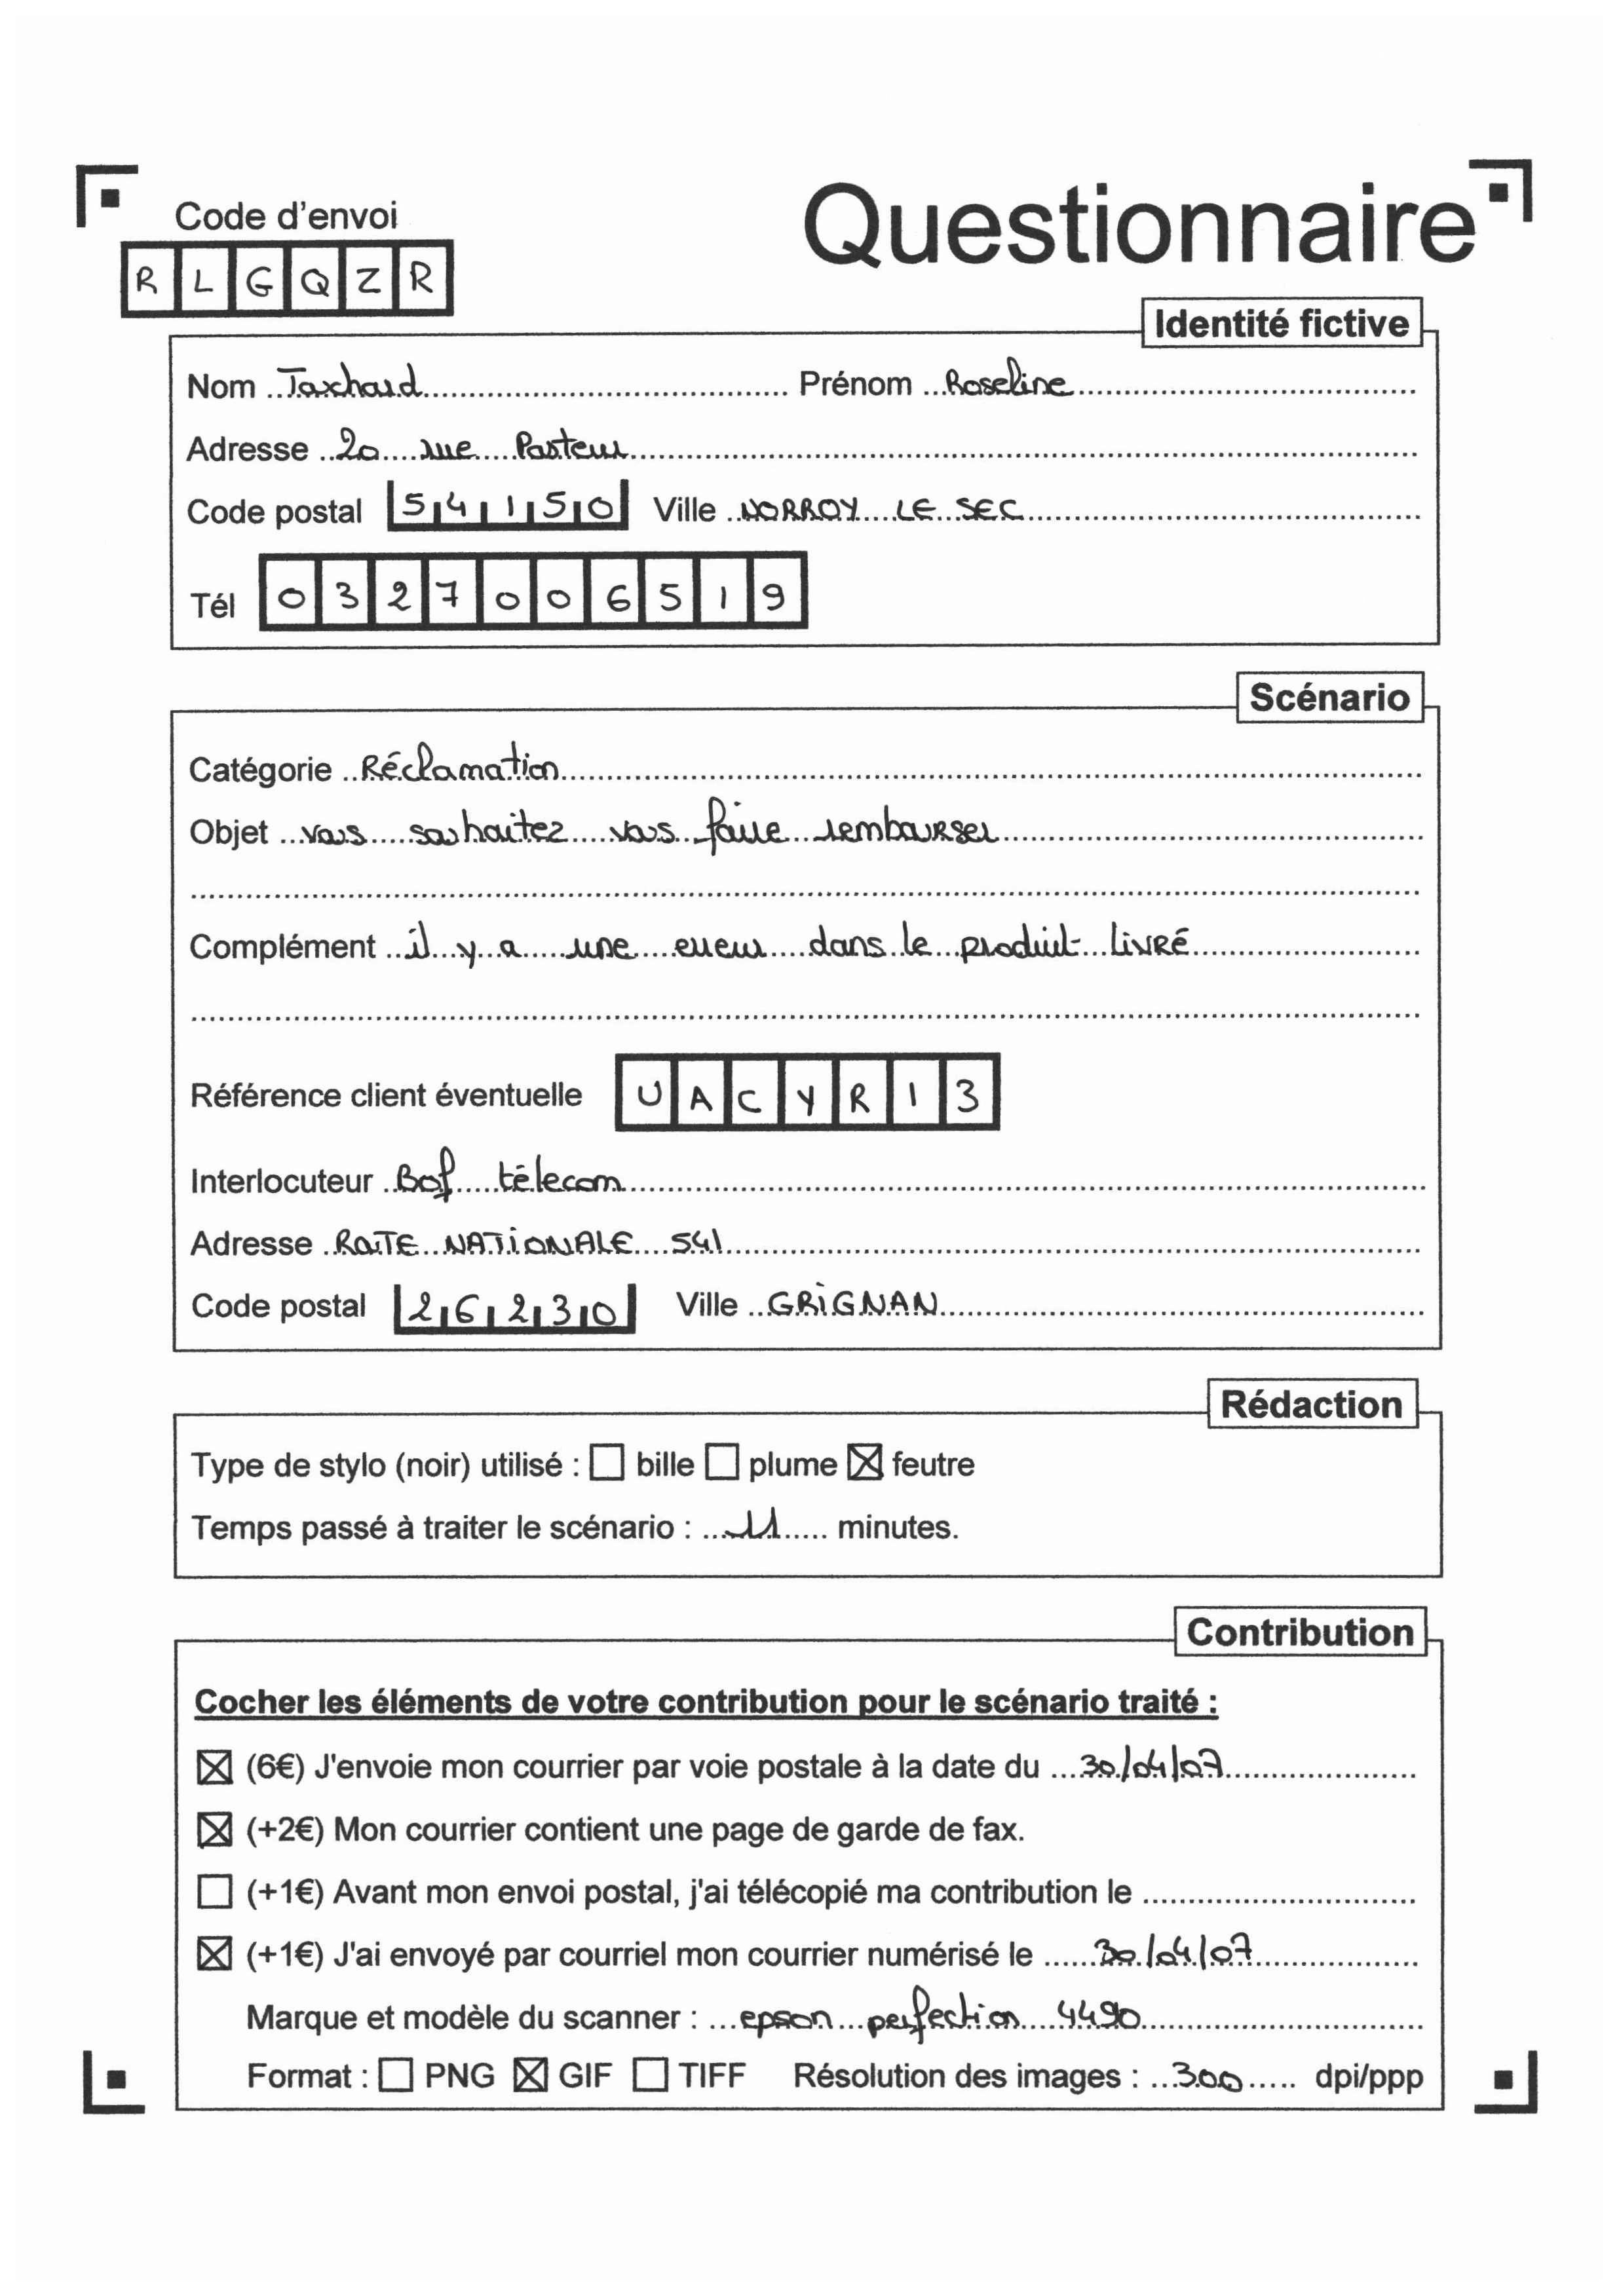 Code d'envoi
Questionnaire
R L G Q Z R
Identité fictive
Nom Taxhard Prénom Roseline
Adresse 20 rue Pasteur
Code postal 54150 Ville NORROY LE SEC
Tél 0327006519
Scénario
Catégorie Réclamation
Objet vous souhaitez vous faire rembourser
Complément il y a une erreur dans le produit livré
Référence client éventuelle U A C Y R 1 3
Interlocuteur Bof télecom
Adresse ROUTE NATIONALE 541
Code postal 26230 Ville GRIGNAN
Rédaction
Type de stylo (noir) utilisé : ☐ bille ☐ plume ☒ feutre
Temps passé à traiter le scénario : 11 minutes.
Contribution
Cocher les éléments de votre contribution pour le scénario traité :
☒ (6€) J'envoie mon courrier par voie postale à la date du 30/04/07
☒ (+2€) Mon courrier contient une page de garde de fax.
☐ (+1€) Avant mon envoi postal, j'ai télécopié ma contribution le
☒ (+1€) J'ai envoyé par courriel mon courrier numérisé le 30/04/07
Marque et modèle du scanner : epson perfection 4490
Format : ☐ PNG ☒ GIF ☐ TIFF Résolution des images : 300 dpi/ppp